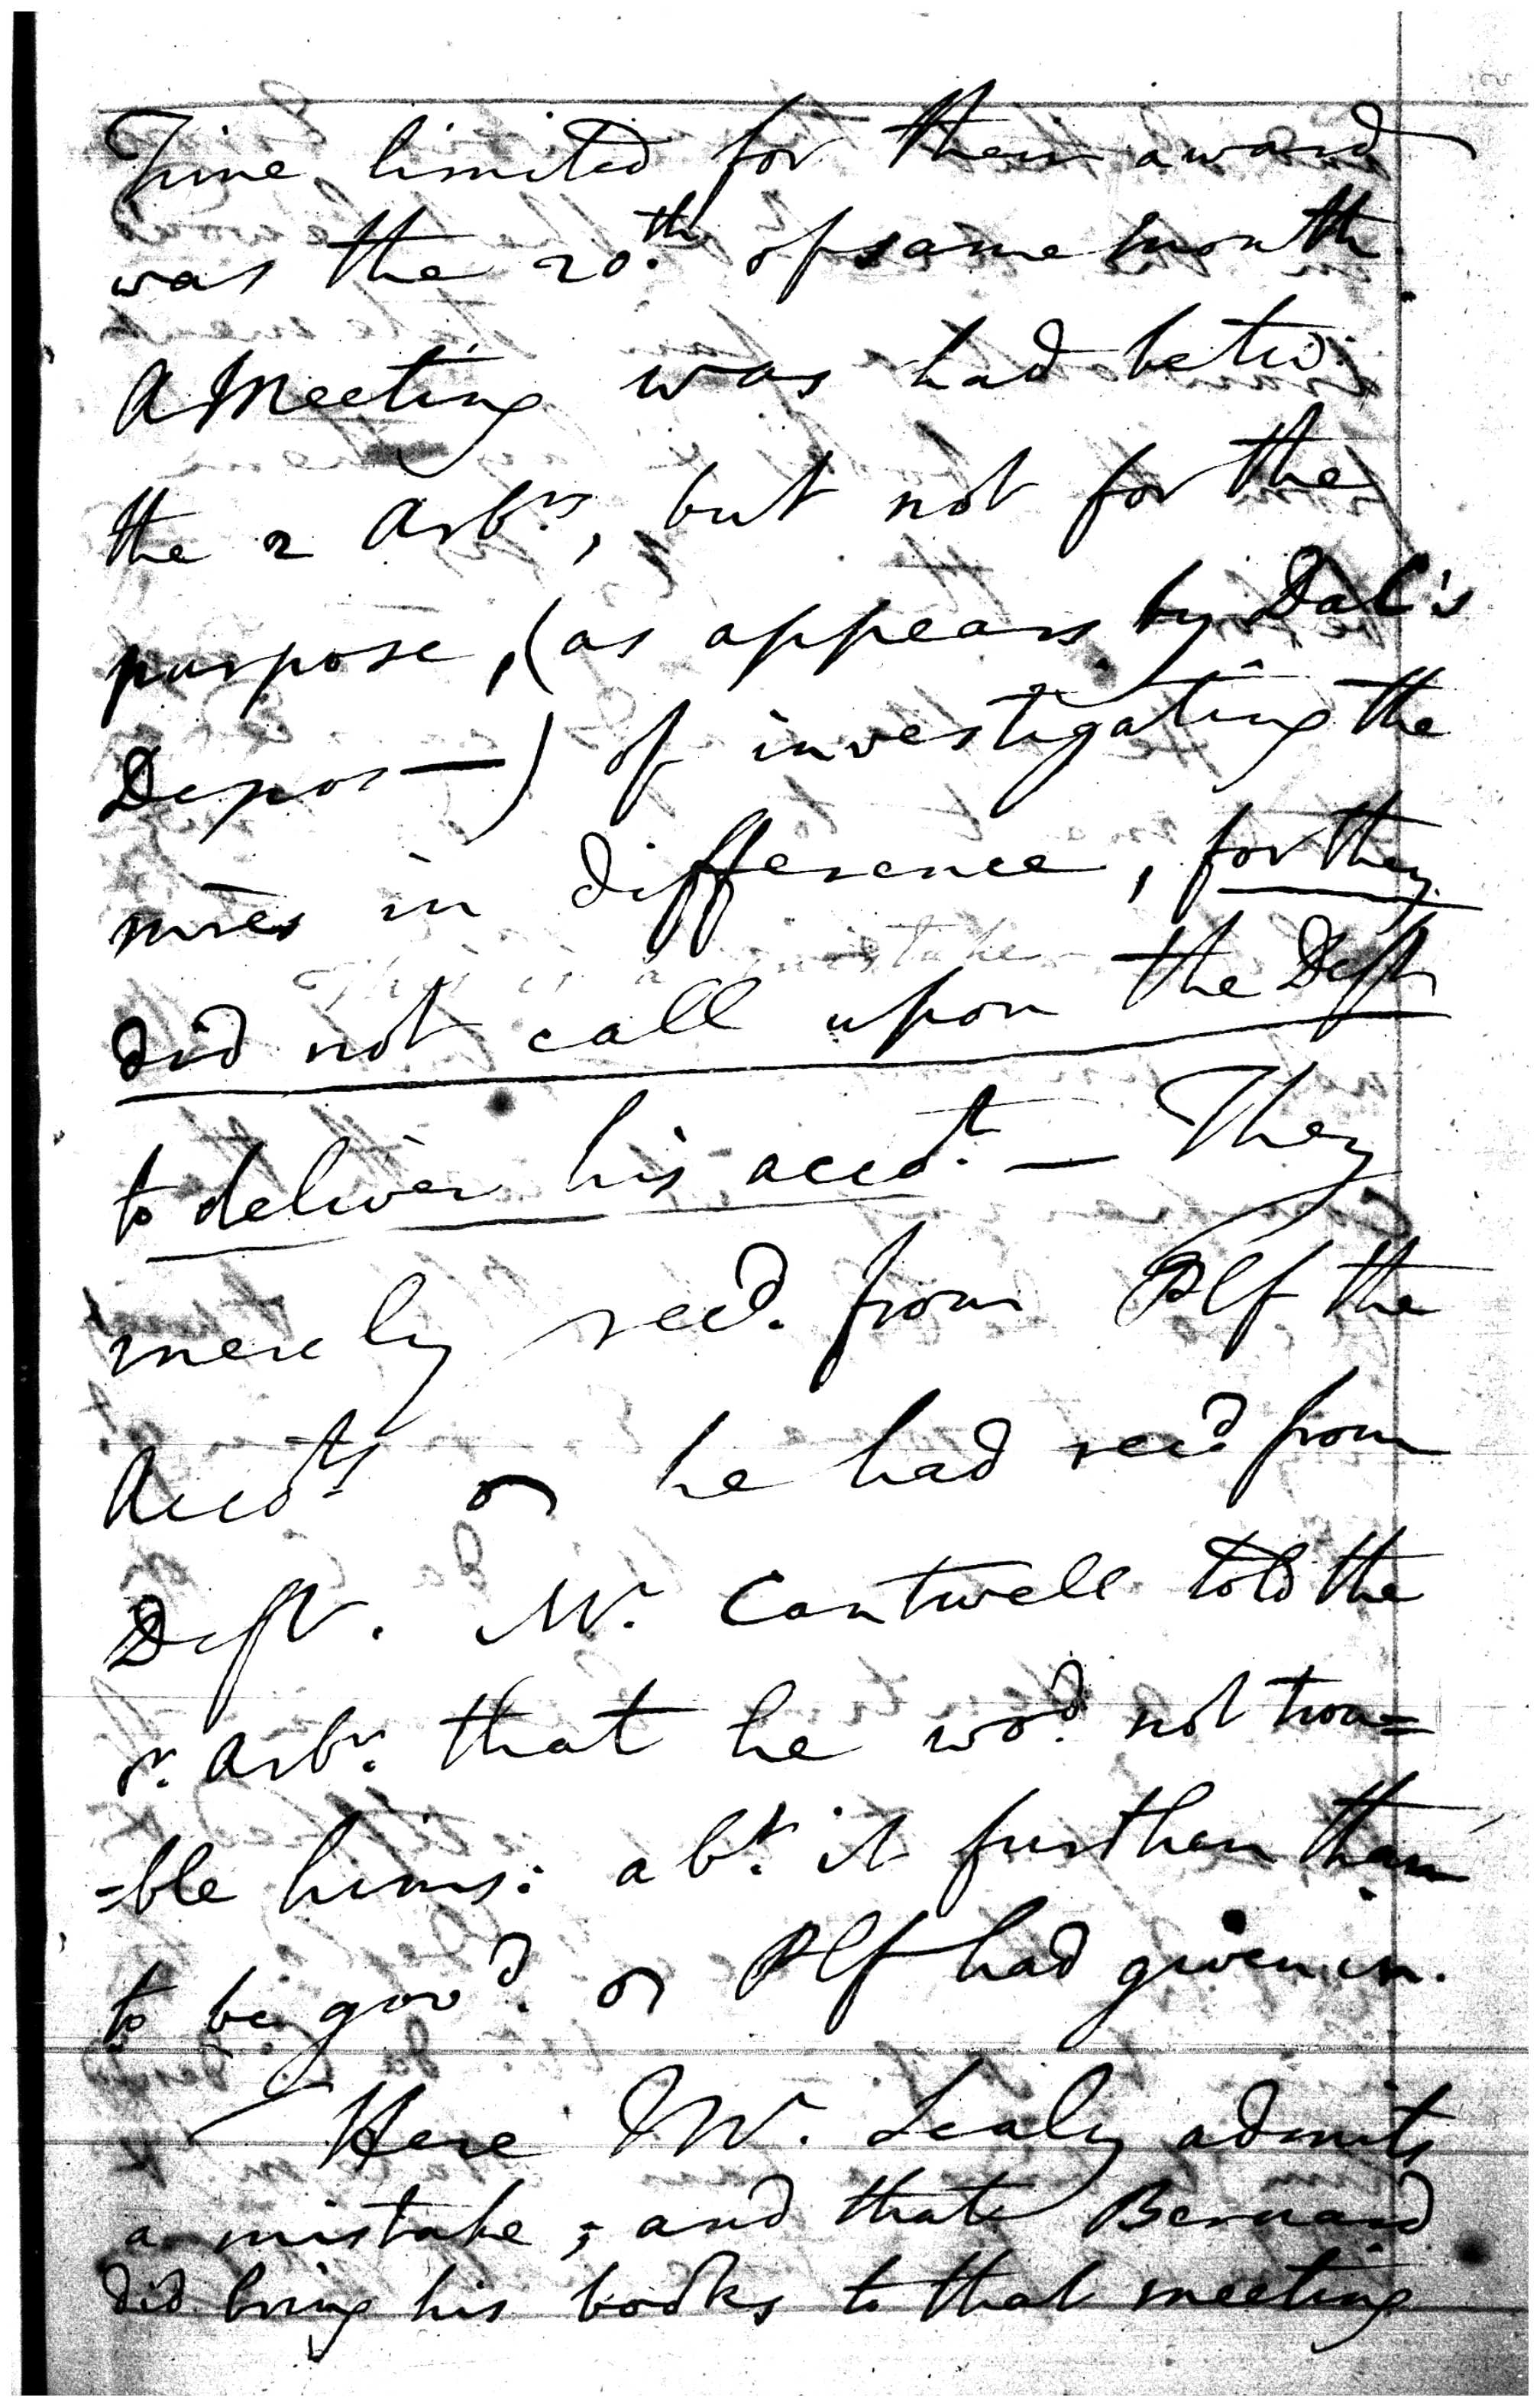 Time limited for their award
was the 20.th of same month.
A Meeting was had betw
the 2 Arb.rs, but not for the
purpose, (as appears by DaC's
Depos—) of investigating the
mres in difference, for they
did not call upon the Deft
to deliver his accot. — They
merely recd. from Plf the
Accots he had recd from
Deft. Mr. Cantwell told the
or. Arbr. that he wod. not trou=
=ble hims: abt. it further than
to be gov'd. Plf had given in.
Here Mr. Lealy admits
a mistake, and that Bernard
did bring his books to that meeting